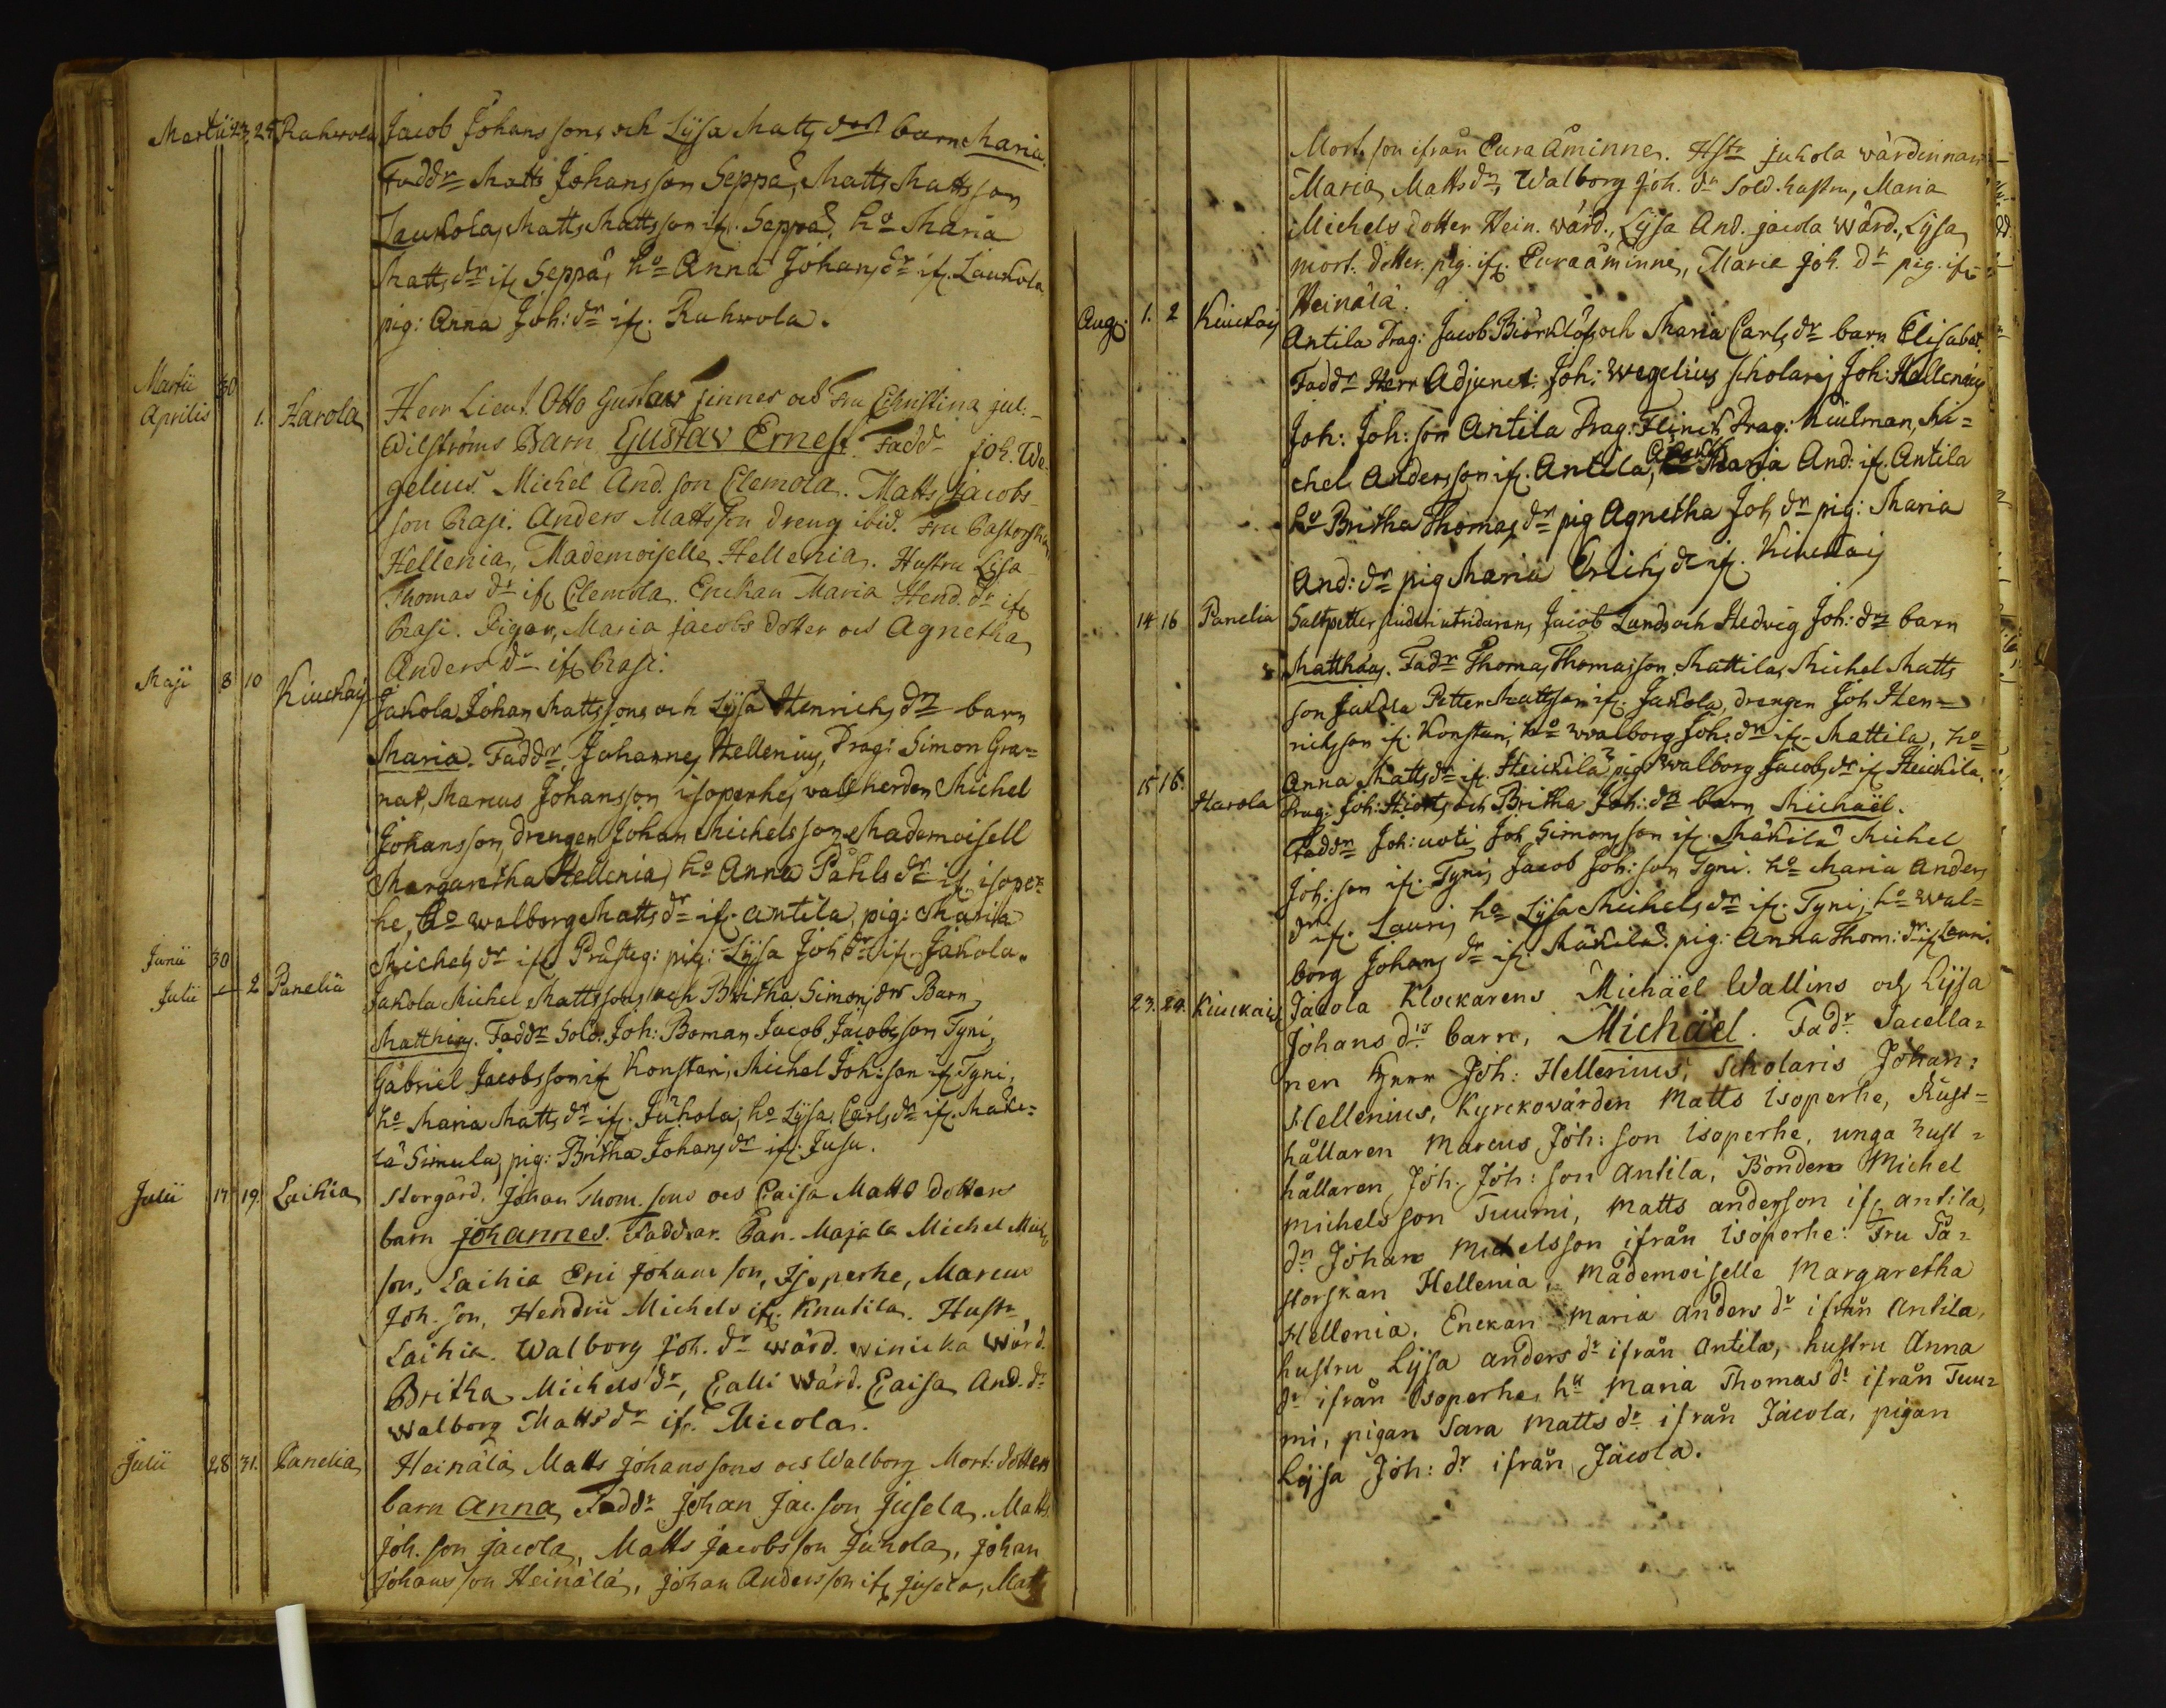 Martii 23. 25. Rahwola Jacob Johanssons och Lysa Matts dotts barn Maria.
Faddr Matts Johansson Seppä, Matts Mattsson
Laukola, Matts Mattsson if. Seppä, ho Maria
Matts dr if. Seppä, ho Anna Johans dr if. Laukola,
pig: Anna Joh: dr if. Rahwola.
Martii 30
Aprilis 1. Harola Herr Lieut. Otto Gustav Finnes och Fru Christina jul:
Wilströms Barn Gustav Ernest. Faddr joh. We-
gelius. Michel And. son Clemola. Matts Jacobs-
son Prasi. Anders Mattsson dreng ibid. Fru Pastorskan
Hellenia, Mademoiselle Hellenia. Hustru Lisa
Thomas dr if. Clemola. Enckan Maria Hend. dr if.
Prasi. Pigor, Maria jacobs dotter och Agnetha
Anders dr if. Prasi.
Maji 8 10 Kiuckais Jakola Johan Mattssons och Lysa Henrichs dr barn
Maria. Faddr. Johannes Hellenius, Drag: Simon Gra=
nat, Marcus Johansson isoperhe, vallherden Michel
Johansson, drengen Johan Michelsson, Mademoisell
Margaretha Hellenia, ho Anna Påhls dr if. isoper=
he, ho walborg Matts dr if. antila, pig: Maria
Michels dr if. Prästeg: pig: Lysa Joh dr if. Jakola.
Junii 30
Julii 2 Panelia Jakola Michel Mattssons och Britha Simons drs Barn
Matthias. Faddr Sold. Joh: Boman Jacob Jacobsson Tyni,
Gabriel Jacobsson if Konstari, Michel Joh: son if Tyni,
ho Maria Matts dr if. Juhola, ho Lysa Carls dr if. Mäki=
lä Simula, pig: Britha Johans dr if. Jusu.
Julii 17 19. Laihia Storgård. Johan Thom. sons och Caisa Matts dotters
barn johannes. Faddrar. Pan. Majala Michel Mich
son, Laihia Eric Johans son, Isoperhe, Marcus
Joh. son, Hendric Michels if. Knutila. Hustr
Laihia. Walborg Joh. dr wärd. winicka wärd.
Britha Michels dr, Ealli wärd. Caisa And. dr
walborg Matts dr if. Micola.
Julii 28 31. Panelia Heinälä Matts johanssons och Walborg Mort: dotters
barn Anna, Faddr Johan Jac. son Jusela. Matts
joh. son jacola, Matts jacobsson Juhola, johan
johansson Heinälä, johan Andersson if. jusela, Matts
Mort. son ifrån Eura Åminne. Hstr juhola wärdinnan
Maria Matts dr, Walborg joh. dr Sold. hustru, Maria
Michels dotter Hein. wärd., Lysa And. jacola wärd., Lysa
mort. dotter. pig. if. Euraåminne, Maria joh. dr pig. if.
Heinälä.
Aug. 1. 2 Kiuckais Antila Drag: Jacob Biörklöfs och Maria Carls dr barn Elisabet.
Faddr Herr Adjunct: Joh: wegelius scholaris Joh: Hellenius
Joh: Joh: son Antila Drag: Flinck, Drag: Kiulman, Mi=
chel Andersson if. Antila, Maria And: if. Antila
ho Britha Thomas dr pig Agnetha Joh dr pig: Maria
And: dr pig Maria Erichs dr if. Kiuckais
14 16 Panelia Saltpetter siuderi utridarens Jacob Lunds och Hedvig Joh: drs barn
Matthias. Fadr Thomas Thomasson Mattila, Michel Matts
son Jakola Petter Mattsson if. Jakola, drengen Joh Hen=
richsson if. Konstari, ho walborg Joh: dr if. Mattila, ho
Anna Matts dr if. Heickilä, pig walborg Jacobs dr if Heickila.
15 16. Harola Drag: Joh: Hiorts och Britha Joh: dr barn Michaël.
Faddr Joh: uoti Joh Simonsson if. Mäkilä Michel
Joh: son if. Tyni, Jacob Joh: son Tyni. ho Maria Anders
dr if. Lauri, ho Lysa Michels dr if. Tyni, ho wal=
borg Johans dr if. Mäkilä. pig: Anna Thom: dr if Lauri.
23. 24. Kiuckais Jacola Klockarens Michäel Wallins och Lysa
Johans drs barn, Michäel. Fadr. Sacella=
nen Herr Joh: Hellenius, Scholaris Johan:
Hellenius, Kyrckovärden Matts Isoperhe, Rust=
hållaren Marcus Joh: son Isoperhe, unga Rust=
hållaren Joh. Joh: son Antila, Bonden Michel
Michelsson Tuumi, Matts anderson if. antila,
dn Johan Michelsson ifrån Isoperhe: Fru Pa=
storskan Hellenia, Mademoiselle Margaretha
Hellenia. Enckan Maria anders dr ifrån Antila,
hustru Lysa anders dr ifrån Antila, hustru Anna
dr ifrån Isoperhe, hu Maria Thomas dr ifrån Tuu=
mi, pigan Sara Matts dr ifrån Jacola, pigan
Lysa Joh: dr ifrån Jacola.